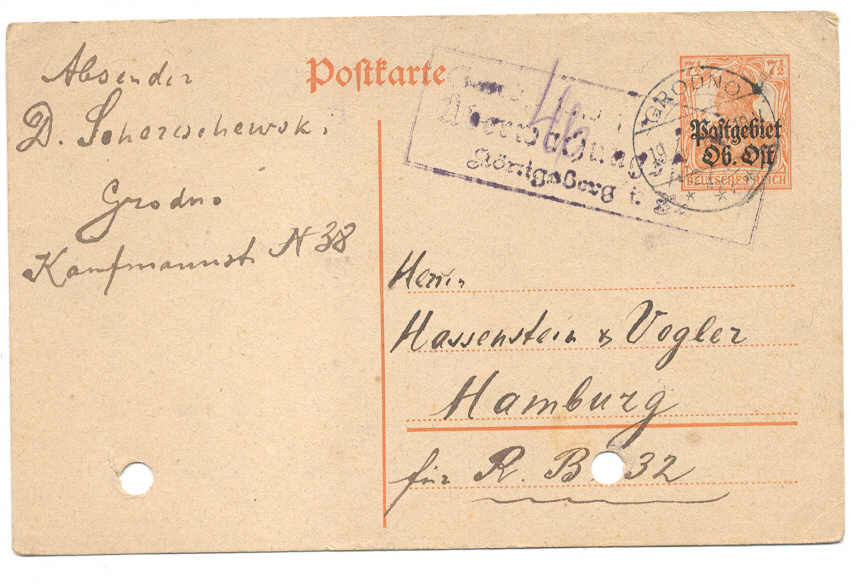 Absender
D. Schereschewski.
Grodno
Kaufmannst. N 38
Postkarte
Überwachung
Königsberg i.
GRODNO
7½
Postgebiet
Ob. Ost
DEUTSCHES REICH
Herrn
Hassenstein & Vogler
Hamburg
für R. B 32